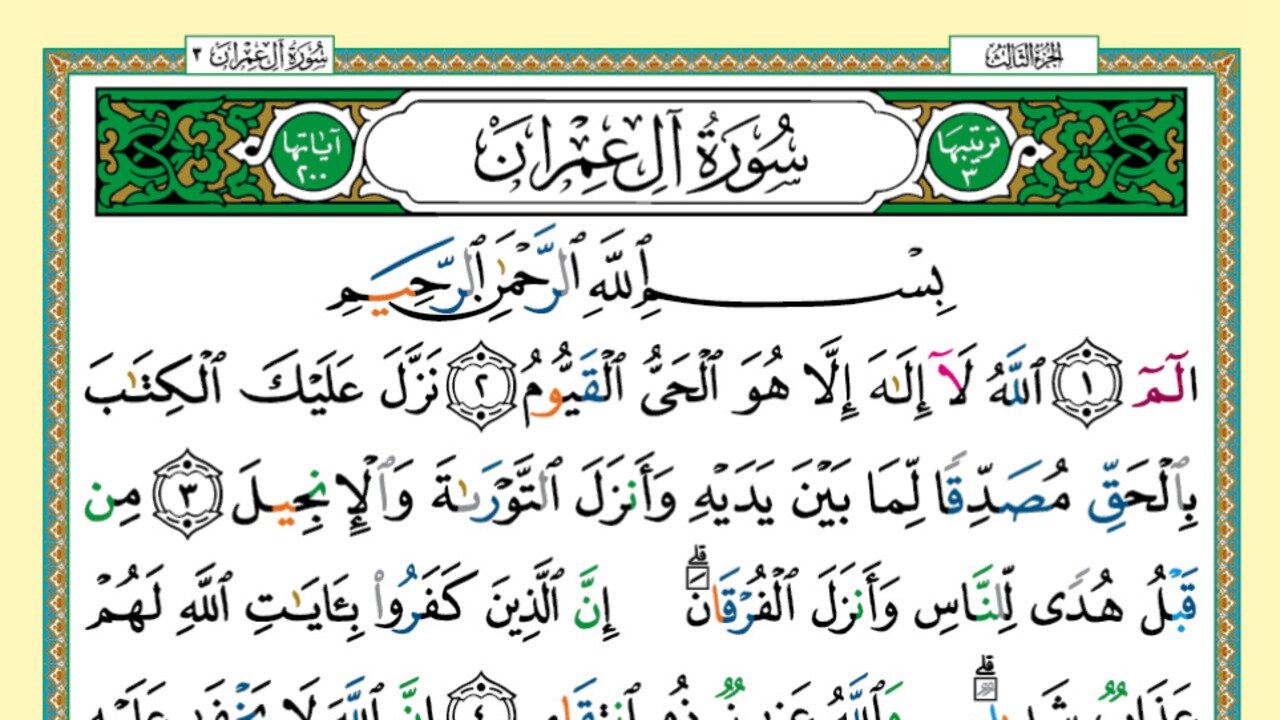 الجزء الثالث
سورة آل عمران ٣
ترتيبها ٣
سُورَةُ آلِ عِمْرَانَ
آياتها ٢٠٠
بِسْمِ ٱللَّهِ ٱلرَّحْمَٰنِ ٱلرَّحِيمِ
الٓمٓ ١ ٱللَّهُ لَآ إِلَٰهَ إِلَّا هُوَ ٱلْحَىُّ ٱلْقَيُّومُ ٢ نَزَّلَ عَلَيْكَ ٱلْكِتَٰبَ
بِٱلْحَقِّ مُصَدِّقًا لِّمَا بَيْنَ يَدَيْهِ وَأَنزَلَ ٱلتَّوْرَىٰةَ وَٱلْإِنجِيلَ ٣ مِن
قَبْلُ هُدًى لِّلنَّاسِ وَأَنزَلَ ٱلْفُرْقَانَ ۗ إِنَّ ٱلَّذِينَ كَفَرُوا۟ بِـَٔايَٰتِ ٱللَّهِ لَهُمْ
عَذَابٌ شَدِيدٌ ۗ وَٱللَّهُ عَزِيزٌ ذُو ٱنتِقَامٍ ٤ إِنَّ ٱللَّهَ لَا يَخْفَىٰ عَلَيْهِ